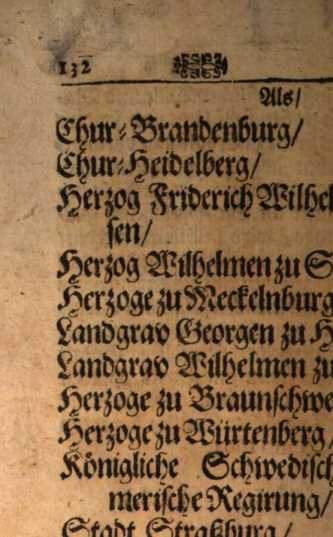 132
Als/
Chur-Brandenburg/
Chur-Heidelberg/
Herzog Friderich Wilhel
sen/
Herzog Wilhelmen zu S
Herzoge zu Meckelnburg
Landgrav Georgen zu H
Landgrav Wilhelmen zu
Herzoge zu Braunschwe
Herzoge zu Würtenberg/
Königliche Schwedisch
merische Regirung/
Stadt Straßburg/